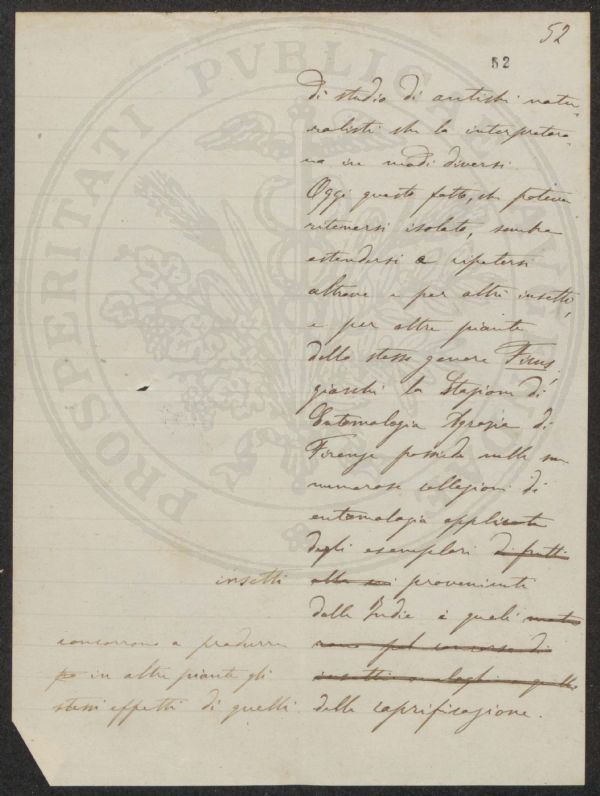 52
52
di studio di antichi natu-
ralisti che la interpretaro-
no in modi diversi.
Oggi questo fatto, che poteva
ritenersi isolato, sembra
estendersi e ripetersi
altrove e per altri insetti,
e per altre piante
dello stesso genere Ficus,
giacchè la Stazione di
Entomologia Agraria di
Firenze possiede nelle sue
numerose collezioni di
entomologia applicata
degli esemplari di frutti
insetti provenienti
dalle Indie i quali
concorrono a produrre
in altre piante gli
stessi effetti di quelli della caprificazione.
PROSPERITATI PVBLICAE